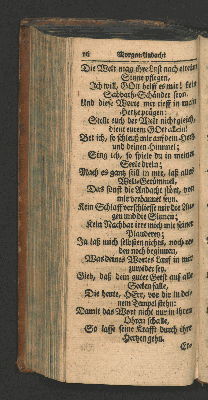 26 Morgen-Andacht
Die Welt mag ihre Lust nach eitelem
Sinne pflegen,
Ich will, GOtt helff es mir! kein
Sabbath-Schänder seyn.
Und diese Worte mir tieff in mein
Hertze prägen:
Stellt euch der Welt nicht gleich,
dient eurem GOtt allein!
Bet ich, so schleuß mir auf dein Hertz
und deinen Himmel;
Sing ich, so spiele du in meiner
Seele drein;
Mach es gantz still in mir, laß alles
Welt-Getümmel,
Das sonst die Andacht stört, von
mir verbannet seyn.
Kein Schlaff verschliesse mir die Au-
gen und die Sinnen;
Kein Nachbar irre mich mit seiner
Plauderey;
Zu laß mich selbsten nichts, noch
den noch beginnen,
Was deines Wortes Lauf in mir
zuwider sey.
Gieb, daß dein guter Geist auf alle
Seelen falle,
Die heute, HErr, vor dir in dei-
nem Tempel stehn:
Damit das Wort nicht nur in ihren
Ohren schalle,
So lasse seine Krafft durch ihre
Hertzen gehn.